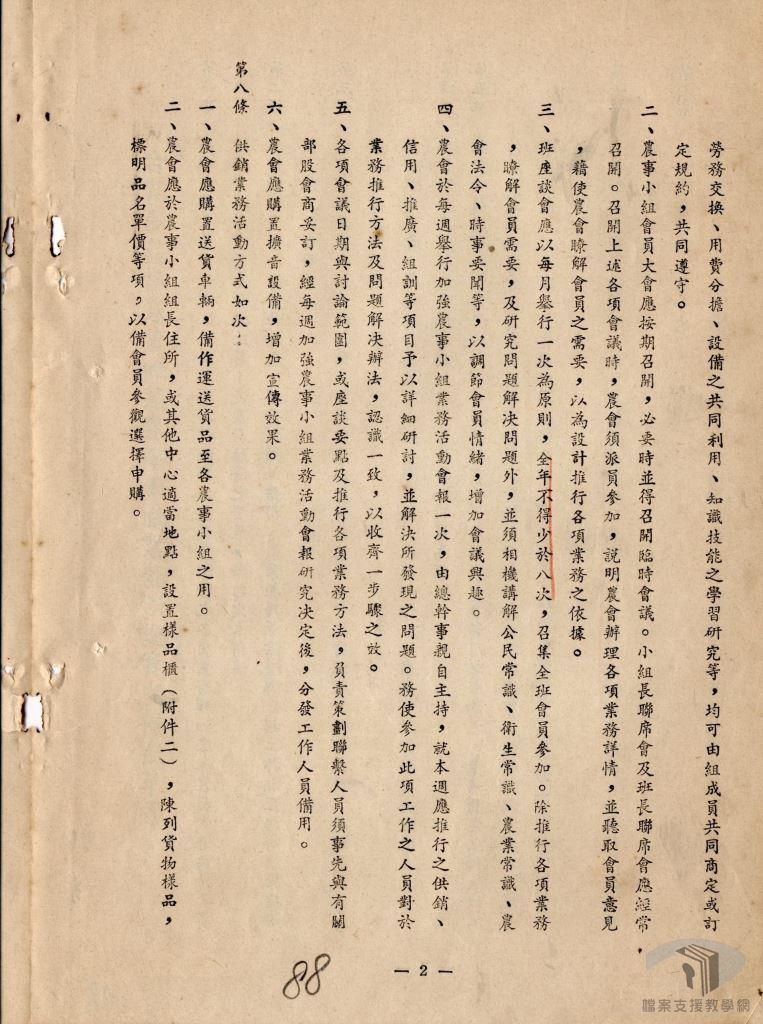 勞務交換、用費分擔、設備之共同利用、知識技能之學習研究等，均可由組成員共同商定或訂
定規約，共同遵守。
二、農事小組會員大會應按期召開，必要時並得召開臨時會議。小組長聯席會及班長聯席會應經常
召開。召開上述各項會議時，農會須派員參加，說明農會辦理各項業務詳情，並聽取會員意見
，藉使農會瞭解會員之需要，以為設計推行各項業務之依據。
三、班座談會應以每月舉行一次為原則，全年不得少於八次，召集全班會員參加。除推行各項業務
，瞭解會員需要，及研究問題解決問題外，並須相機講解公民常識、衛生常識、農業常識、農
會法令、時事要聞等，以調節會員情緒，增加會議興趣。
四、農會於每週舉行加強農事小組業務活動會報一次，由總幹事親自主持，就本週應推行之供銷、
信用、推廣、組訓等項目予以詳細研討，並解決所發現之問題。務使參加此項工作之人員對於
業務推行方法及問題解決辦法，認識一致，以收齊一步驟之效。
五、各項會議日期與討論範圍，或座談要點及推行各項業務方法，負責策劃聯繫人員須事先與有關
部股會商妥訂，經每週加強農事小組業務活動會報研究決定後，分發工作人員備用。
六、農會應購置擴音設備，增加宣傳效果。
第八條　供銷業務活動方式如次：
一、農會應購置送貨車輛，備作運送貨品至各農事小組之用。
二、農會應於農事小組組長住所，或其他中心適當地點，設置樣品櫃（附件二），陳列貨物樣品，
標明品名單價等項，以備會員參觀選擇申購。
— 2 —
88
檔案支援教學網